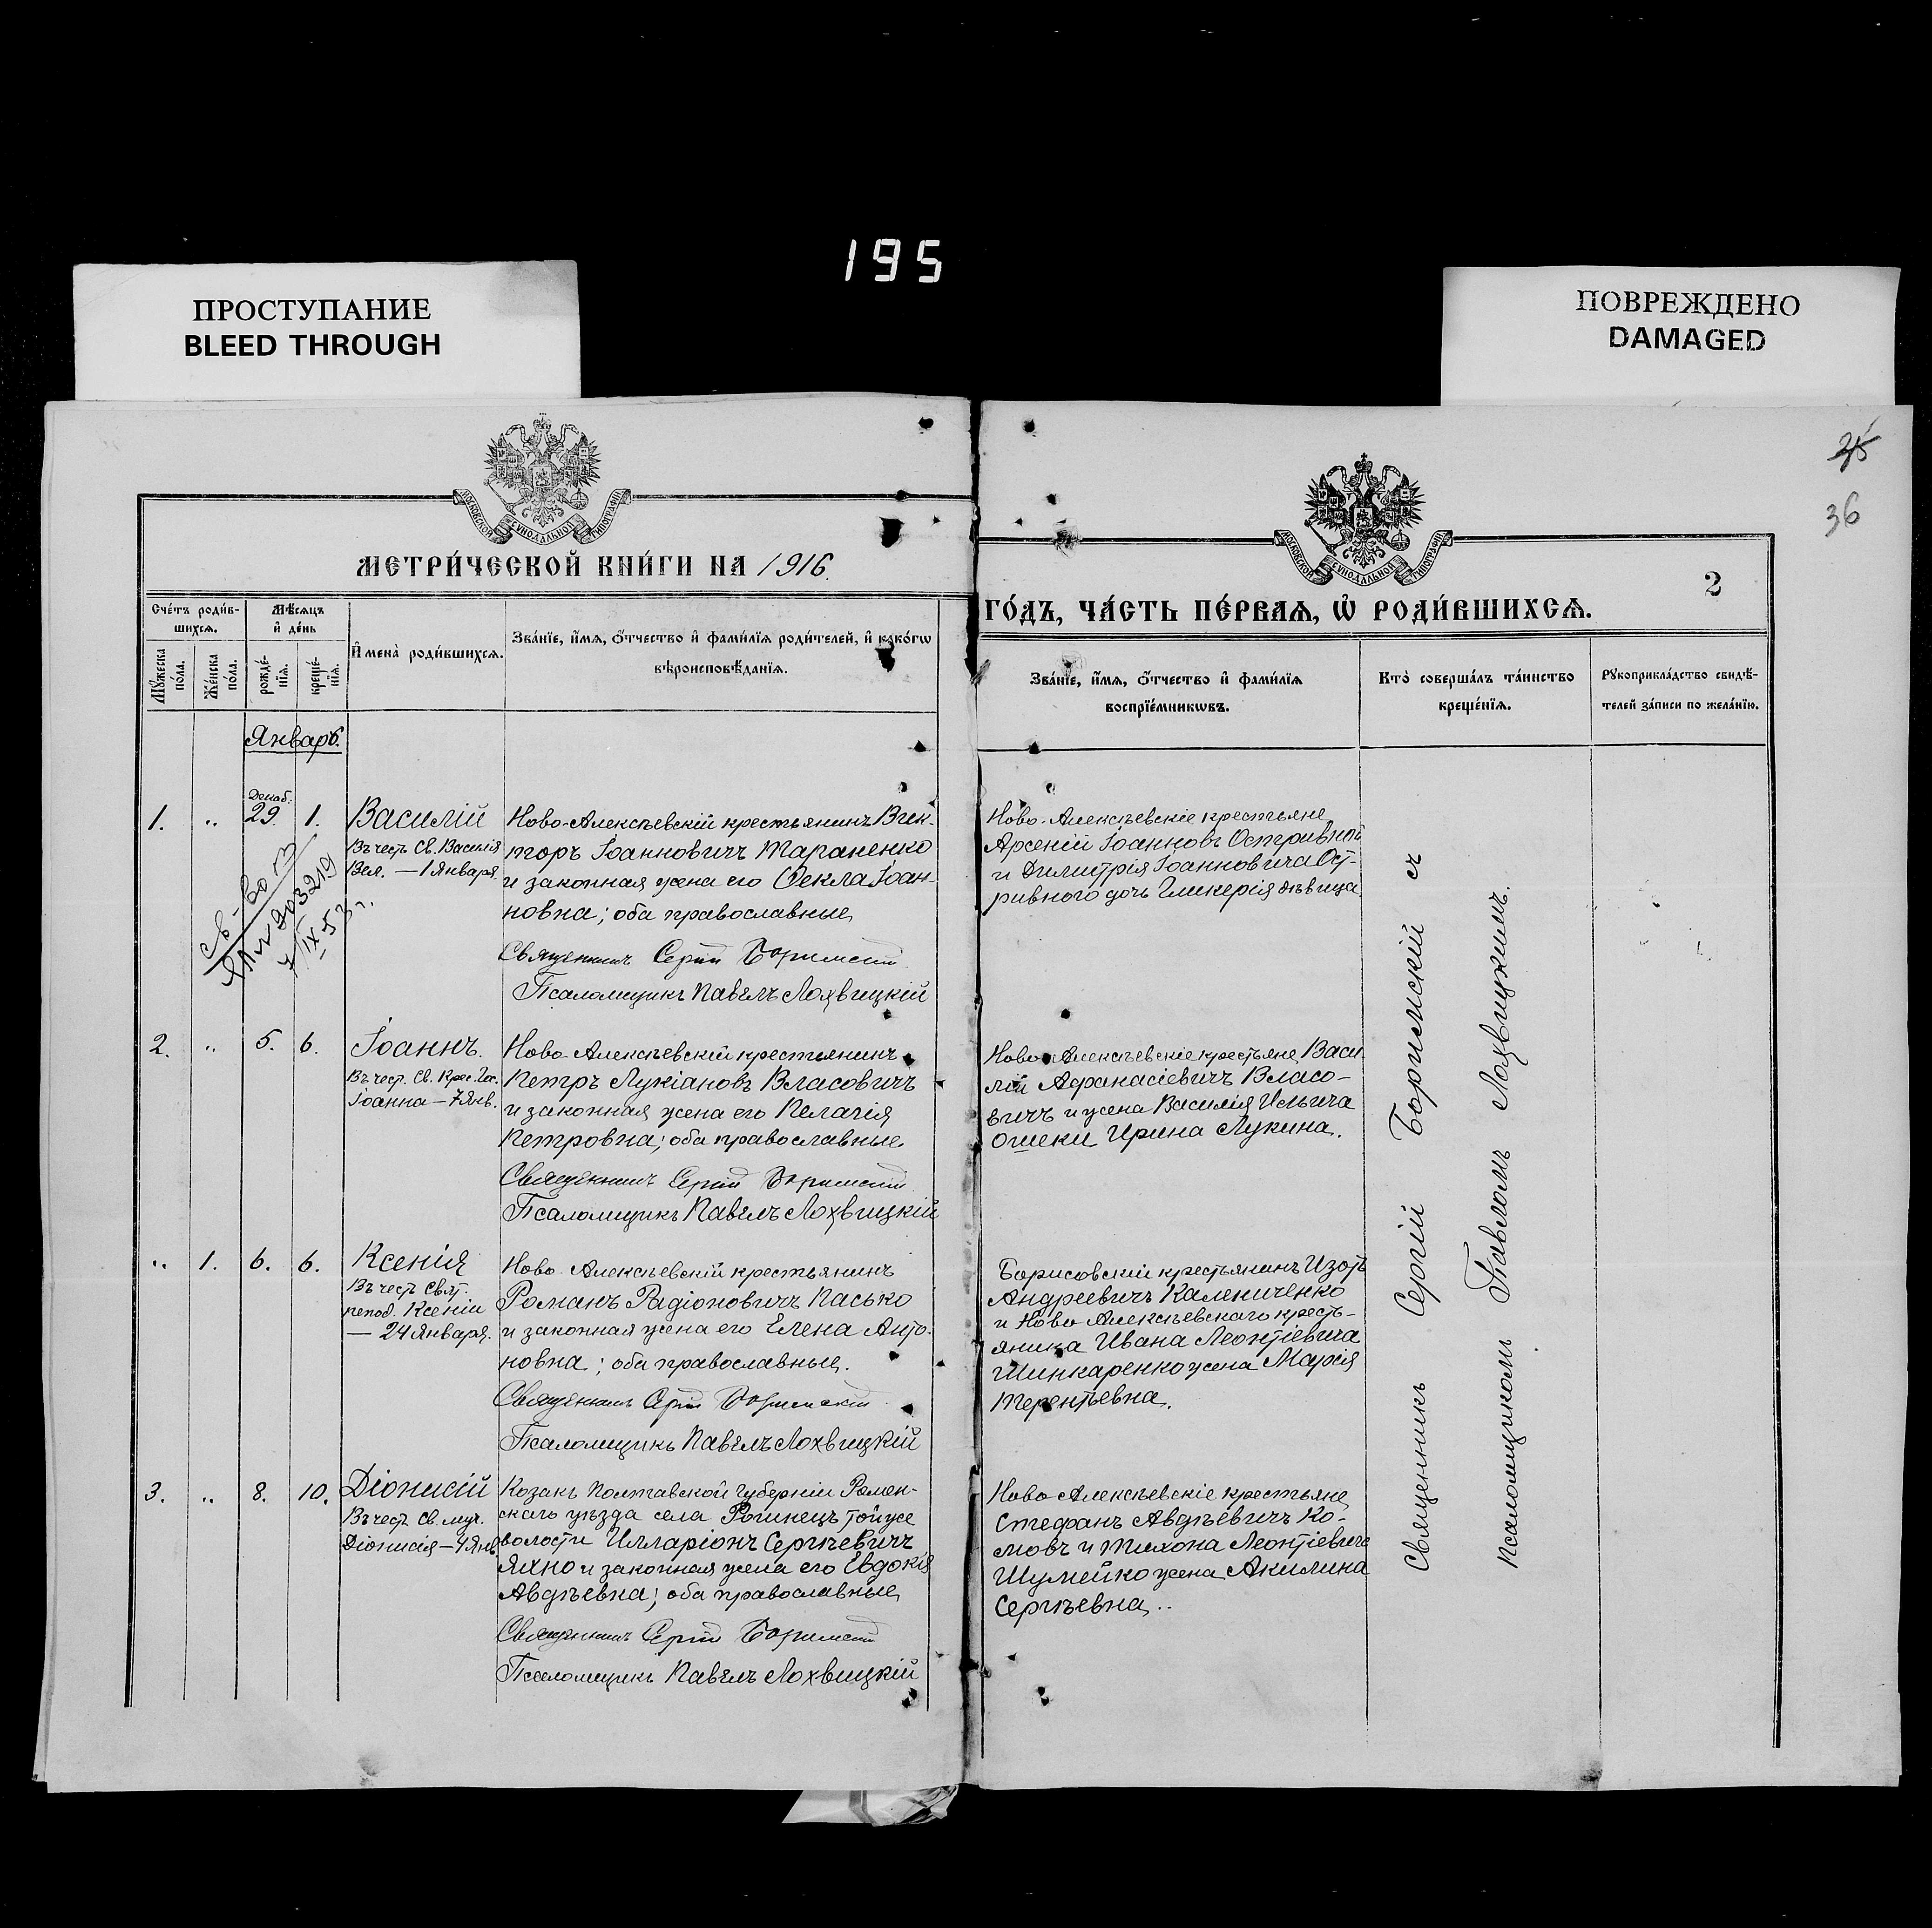 195
ПРОСТУПАНИЕ
BLEED THROUGH
ПОВРЕЖДЕНО
DAMAGED
МОСКОВСКОЙ СѴНОДАЛЬНОЙ ТИПОГРАФІИ
МОСКОВСКОЙ СѴНОДАЛЬНОЙ ТИПОГРАФІИ
25
36
МЕТРИ́ЧЕСКОЙ КНИ́ГИ НА 1916.
2
ГО́ДЪ, ЧА́СТЬ ПЕ́РВАЯ, Ѡ РОДИ́ВШИХСЯ.
Сче́тъ роди́в-
шихся.
Мѣ́сяцъ
и де́нь
Мꙋ́жеска
по́ла.
Же́нска
по́ла.
рожде́-
нїя.
креще́-
нїя.
И҆мена̀ роди́вшихся.
Зва́нїе, и҆́мя, ѻ҆́тчество и҆ фами́лїя роди́телей, и҆ како́гѡ
вѣроисповѣ́данїя.
Зва́нїе, и҆́мя, ѻ҆́тчество и҆ фами́лїя
воспрїе́мникѡвъ.
Кто̀ соверша́лъ та́инство
креще́нїя.
Рꙋкоприкла́дство свидѣ́-
телей за́писи по жела́нїю.
Январь.
1. „ Декаб. 29. 1.
Василій
Въ честь Св. Василія
Вел. — 1 Января.
Ново-Алексѣевскій крестьянинъ Вик-
торъ Іоанновичъ Тараненко
и законная жена его Ѳекла Іоан-
новна; оба православные
Священникъ Сергій Боримскій
Псаломщикъ Павелъ Лохвицкій
Ново-Алексѣевскіе крестьяне
Арсеній Іоанновъ Остривной
и Димитрія Іоанновича Ост-
ривного дочь Гликерія дѣвица
св-во
203219
7/IX 53 г.
2. „ 5. 6.
Іоаннъ.
Въ чест. Св. Крес. Гос.
Іоанна — 7 Янв.
Ново-Алексѣевскій крестьянинъ
Петръ Лукіановъ Власовичъ
и законная жена его Пелагія
Петровна; оба православные
Священникъ Сергій Боримскій
Псаломщикъ Павелъ Лохвицкій
Ново-Алексѣевскіе крестьяне Васи-
лій Афанасіевичъ Власо-
вичъ и жена Василія Ильича
Ошеки Ирина Лукина.
„ 1. 6. 6.
Ксенія
Въ честь Свят.
препод. Ксеніи
— 24 Января.
Ново-Алексѣевскій крестьянинъ
Романъ Радіоновичъ Пасько
и законная жена его Елена Анто-
новна; оба православные.
Священникъ Сергій Боримскій
Псаломщикъ Павелъ Лохвицкій
Борисовскій крестьянинъ Изотъ
Андреевичъ Калениченко
и Ново Алексѣевскаго кресть-
янина Ивана Леонтіевича
Шинкаренко жена Марія
Терентьевна.
3. „ 8. 10.
Діонисій
Въ чест. Св. муч.
Діонисія — 4 Янв.
Козакъ Полтавской губерніи Ромен-
скаго уѣзда села Рогинецъ той же
волости Илларіонъ Сергѣевичъ
Яхно и законная жена его Евдокія
Авдѣевна; оба православные
Священникъ Сергій Боримскій
Псаломщикъ Павелъ Лохвицкій
Ново Алексѣевскіе крестьяне
Стефанъ Авдѣевичъ Ко-
мовъ и Тихона Леонтіевича
Шумейко жена Акилина
Сергѣевна..
Священникъ Сергій Боримскій съ
Псаломщикомъ Павломъ Лохвицкимъ.